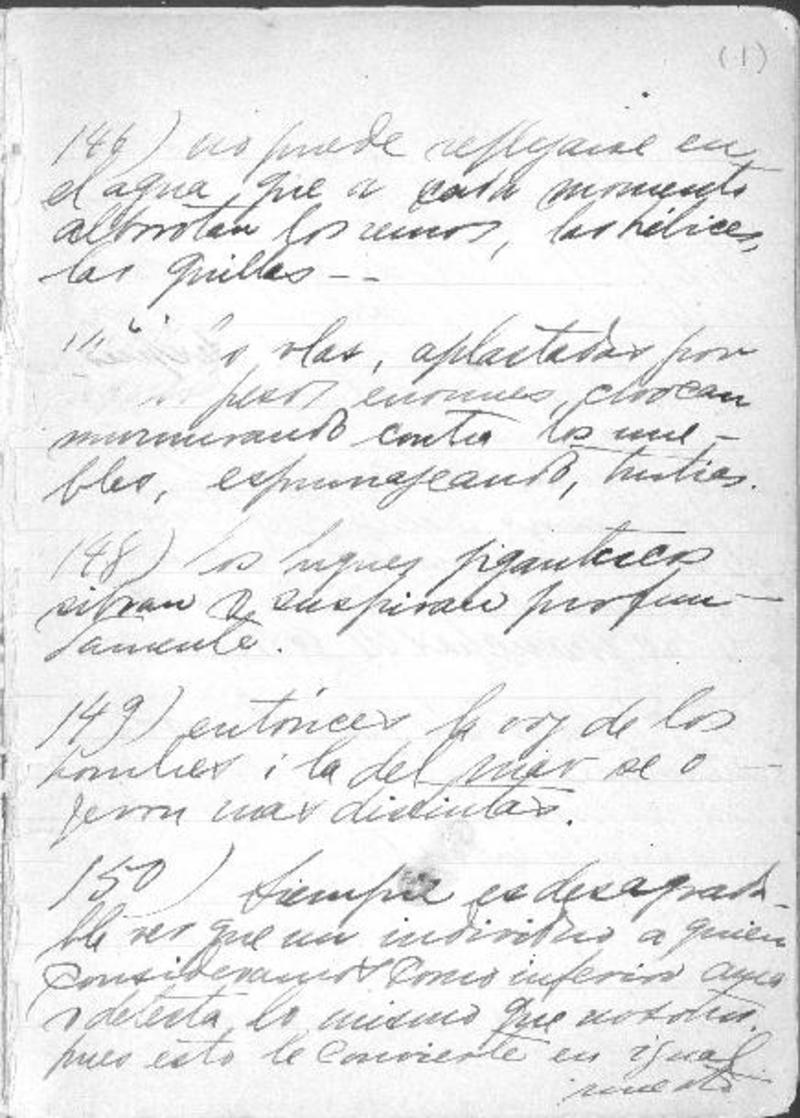 (1)
146) no puede reflejarse en
el agua, que a cada momento
alborotan los remos, las hélices,
las quillas --
olas, aplastadas por
pesos enormes, chocan
murmurando contra los mue-
lles, espumajeando, tristes.
148) los buques gigantescos
silvan y suspiran profun-
damente.
149) entónces la voz de los
hombres i la del mar se o-
yeron mas distintas.
150) Siempre es desagrada-
ble ver que un individuo a quien
consideramos como inferior ama
o detesta lo mismo que nosotros,
pues esto le convierte en igual
nuestro